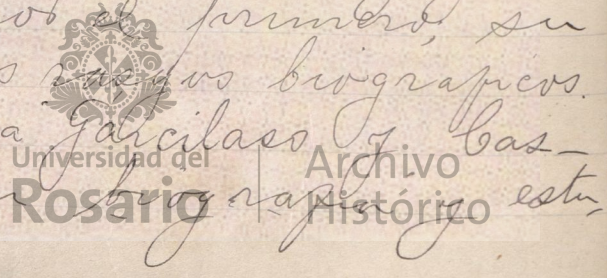 os el primero, su
s rasgos biograficos.
a Garcilaso y Cas-
biografia y estu-
Universidad del
Rosario
Archivo
Histórico